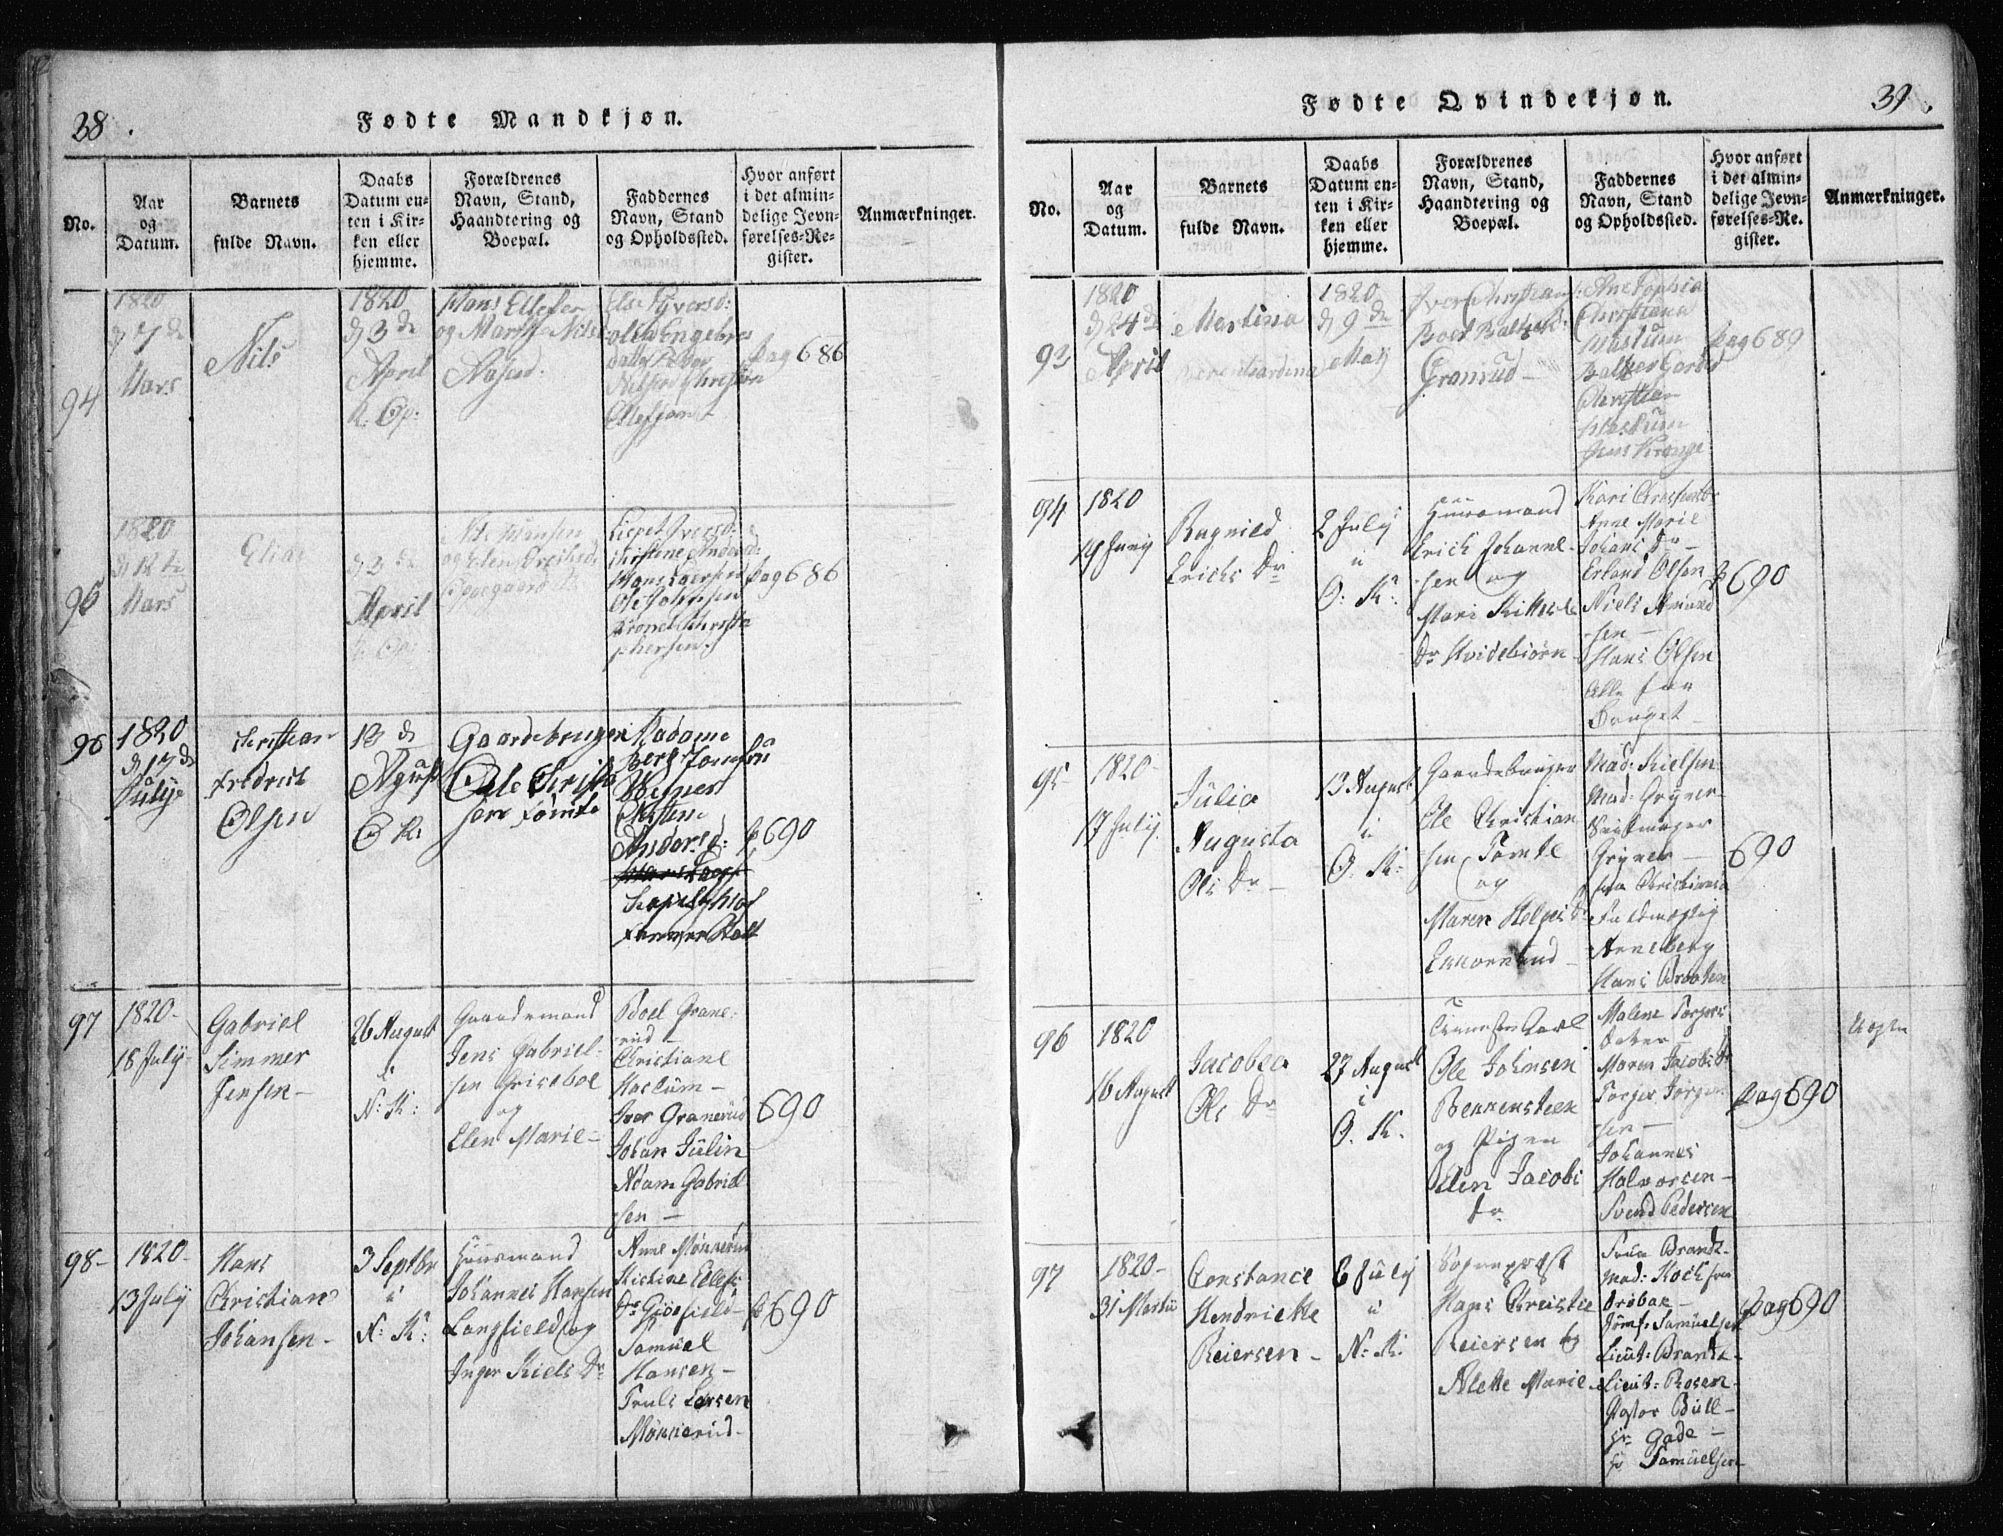 38.
Fødte Mandkjøn.
No.
Aar
og
Datum.
Barnets
fulde Navn.
Daabs
Datum en-
ten i Kir-
ken eller
hjemme.
Forældrenes
Navn, Stand,
Haandtering og
Boepæl.
Faddernes
Navn, Stand
og Opholdssted.
Hvor anført
i det almin-
delige Jevn-
førelses-Re-
gister.
Anmærkninger.
94
1820
d 7 de
Mars
Nils
1820
d 3 de
April
Hans Ellefsen
og Marthe Nils
Aaserud.
Else Syversd:
Nilsen Christen
Ellefsen
Pag 686
95
1820
d 12 te
Mars
Elias
d 3 de
April
Nils Hansen
Hans Larsen
Ole Johnsen
phersen.
Pag 686
96
1820
d 17 de
Julÿe
Christian
Fredrich
Olsen
13 de
Agust
O K:
Gaardebruger
Ole Christi
sen Tomte
Madame
Berg Jomfru
Wegner
Christine
Andersd:
p. 690
97
1820-
18 July-
Gabriel
Simmer
Jensen-
26 August
i
N: K:
Gaardemand
Jens Gabriel-
sen Griseboe
og
Elen Marie-
Boel Grane-
rud -
Christiane
Haslum-
Iver Granerud
Johan Julin
Adam Gabriel
sen -
690
98-
1820-
13 July
Hans
Christian
Johansen-
3 Septbr
i
N: K:
Huusmand
Johannes Hansen
Langfield og
Inger Niels Dr
Anne Mønnerud
Kirstine Ellefs
Dr Gjøsfield-
Samuel
Hansen-
Truls Larsen
Mønnerud-
p 690
39.
Fødte Qvindekjøn.
No.
Aar
og
Datum.
Barnets
fulde Navn.
Daabs
Datum en-
ten i Kir-
ken eller
hjemme.
Forældrenes
Navn, Stand,
Haandtering og
Boepæl.
Faddernes
Navn, Stand
og Opholdssted.
Hvor anført
i det almin-
delige Jevn-
førelses-Re-
gister.
Anmærkninger.
93
1820
d 24 de
April
Martina
Berentsardina
1820
d 9 de
Maÿ
Iver Christians:
Boel Baltzard:
Granrud-
Ane Sophia
Christiana
Haslum
Christian
Haslum
Jens Krange
Pag 689
94
1820
19 Juny
Ragnild
Erichs Dr
2 July
i
O: K:
Huusmand
Erich Johanne-
sen og
Mari Kittels
Dr Hvidebiørn
Anne Marie
Johans Dr -
Erland Olsen
Niels Amund
sen -
Hans Olsen
Alle fra
Bruget-
p 690
95
1820-
17 July.
Julia
Augusta
Ols Dr -
13 August
i
O. K:
Gaardebruger
Ole Christian
sen Tomte
og
Maren Helges Dr
Mad: Nielsen
Mad: Gryner
Gryner -
fra Christiania
Fuldmægtig
Arneberg
Hans Braaten
690
96
1820
16 August
Jacobea
Ols Dr
27 August
i
O. K.
Ole Johnsen
Bekkensteen
og Pigen
Elen Jacobs
Dr
Malene Torgers
dater -
Maren Jacobs Dr
Torger Torger
sen -
Johannes
Halvorsen-
Svend Pedersen
Pag 690
Uægte
97
1820-
31 Martii
Constance
Hendriette
Reiersen -
6 July
i
N: K.
Sognepræst
Hans Christie
Reiersen og
Alette Marie
Frue Brandt-
Mad: Koch fra
Drøbak -
Jomf: Samuelsen
Lieut: Brandt-
Lieut: Rosen-
Pastor Bull-
Hr Gade -
Hr Samuelsen
Pag 690